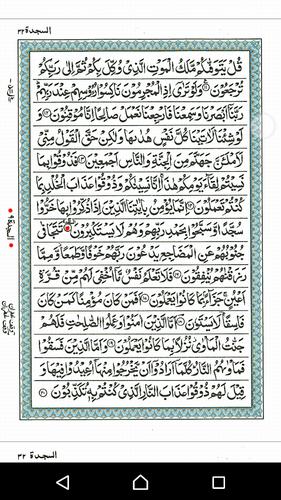 السجدة ٣٢
قُلْ يَتَوَفّٰىكُمْ مَّلَكُ الْمَوْتِ الَّذِىْ وُكِّلَ بِكُمْ ثُمَّ اِلٰى رَبِّكُمْ
تُرْجَعُوْنَ ۝ وَلَوْ تَرٰٓى اِذِ الْمُجْرِمُوْنَ نَاكِسُوْا رُءُوْسِهِمْ عِنْدَ رَبِّهِمْ
رَبَّنَآ اَبْصَرْنَا وَسَمِعْنَا فَارْجِعْنَا نَعْمَلْ صَالِحًا اِنَّا مُوْقِنُوْنَ ۝ وَ
لَوْ شِئْنَا لَاٰتَيْنَا كُلَّ نَفْسٍ هُدٰىهَا وَلٰكِنْ حَقَّ الْقَوْلُ مِنِّىْ
لَاَمْلَـَٔنَّ جَهَنَّمَ مِنَ الْجِنَّةِ وَالنَّاسِ اَجْمَعِيْنَ ۝ فَذُوْقُوْا بِمَا
نَسِيْتُمْ لِقَآءَ يَوْمِكُمْ هٰذَا اِنَّا نَسِيْنٰكُمْ وَذُوْقُوْا عَذَابَ الْخُلْدِ بِمَا
كُنْتُمْ تَعْمَلُوْنَ ۝ اِنَّمَا يُؤْمِنُ بِاٰيٰتِنَا الَّذِيْنَ اِذَا ذُكِّرُوْا بِهَا خَرُّوْا
سُجَّدًا وَّسَبَّحُوْا بِحَمْدِ رَبِّهِمْ وَهُمْ لَا يَسْتَكْبِرُوْنَ ۩ تَتَجَافٰى
جُنُوْبُهُمْ عَنِ الْمَضَاجِعِ يَدْعُوْنَ رَبَّهُمْ خَوْفًا وَّطَمَعًا وَّمِمَّا
رَزَقْنٰهُمْ يُنْفِقُوْنَ ۝ فَلَا تَعْلَمُ نَفْسٌ مَّآ اُخْفِىَ لَهُمْ مِّنْ قُرَّةِ
اَعْيُنٍ جَزَآءً بِمَا كَانُوْا يَعْمَلُوْنَ ۝ اَفَمَنْ كَانَ مُؤْمِنًا كَمَنْ كَانَ
فَاسِقًا لَا يَسْتَوٗنَ ۝ اَمَّا الَّذِيْنَ اٰمَنُوْا وَعَمِلُوا الصّٰلِحٰتِ فَلَهُمْ
جَنّٰتُ الْمَاْوٰى نُزُلًا بِمَا كَانُوْا يَعْمَلُوْنَ ۝ وَاَمَّا الَّذِيْنَ فَسَقُوْا
فَمَاْوٰىهُمُ النَّارُ كُلَّمَآ اَرَادُوْٓا اَنْ يَّخْرُجُوْا مِنْهَآ اُعِيْدُوْا فِيْهَا وَ
قِيْلَ لَهُمْ ذُوْقُوْا عَذَابَ النَّارِ الَّذِىْ كُنْتُمْ بِهٖ تُكَذِّبُوْنَ ۝
السجدة ٩
السجدة ٣٢